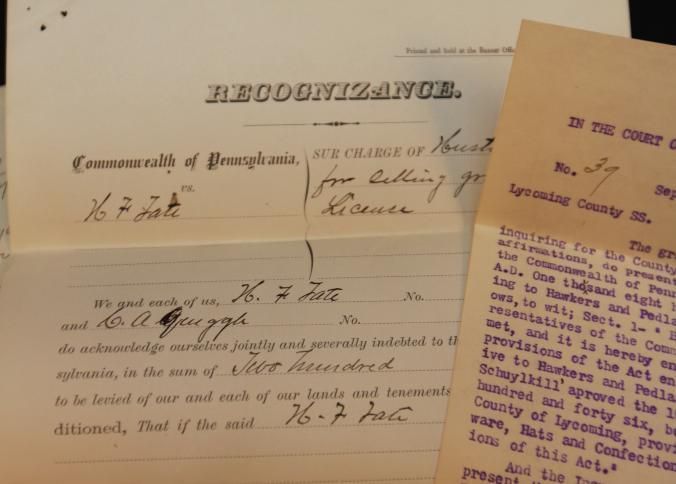 Printed and sold at the Banner Offi
RECOGNIZANCE.
Commonwealth of Pennsylvania,
vs.
H F Tate
SUR CHARGE OF
for Selling
License
We and each of us, H. F Tate No.
and C. A No.
do acknowledge ourselves jointly and severally indebted to th
sylvania, in the sum of Two hundred
to be levied of our and each of our lands and tenements
ditioned, That if the said H. F Tate
IN THE COURT O
No. 39 Sep
Lycoming County SS.
The gr
inquiring for the County
affirmations, do present
the Commonwealth of Penn
A.D. One thosand eight h
ing to Hawkers and Pedla
ows, to wit; Sect. 1- " B
resentatives of the Comm
met, and it is hereby en
provisions of the Act en
ive to Hawkers and Pedla
Schuylkill' aproved the 1
hundred and forty six, be
County of Lycoming, provi
ware, Hats and Confection
ions of this Act."
And the In
present